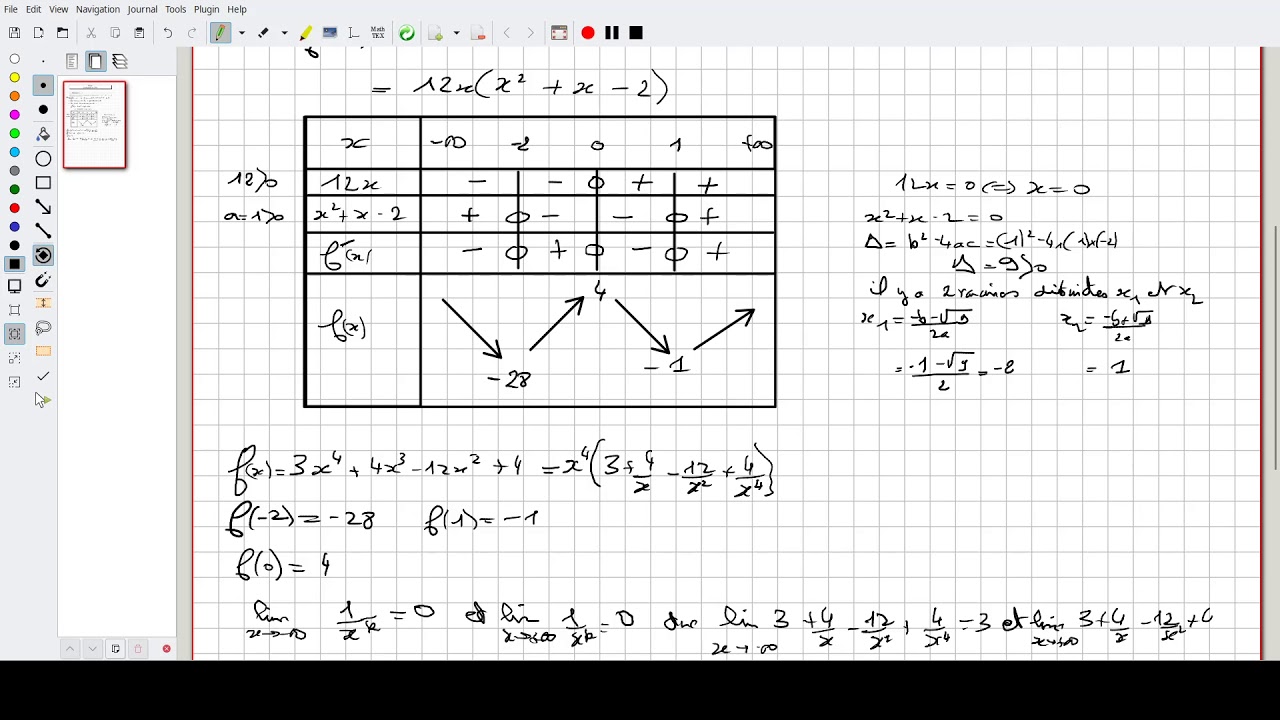 File Edit View Navigation Journal Tools Plugin Help
Math TEX
= 12x(x² + x - 2)
x -∞ -2 0 1 +∞
12>0 12x - - 0 + +
a=1>0 x²+x-2 + 0 - - 0 +
f'(x) - 0 + 0 - 0 +
f(x) 4
-28 -1
12x=0 <=> x=0
x²+x-2=0
Δ= b²-4ac=(-1)²-4×(1)×(-2)
Δ=9>0
il y a 2 racines distinctes x₁ et x₂
x₁=(-b-√9)/2a x₂=(-b+√9)/2a
=(-1-√9)/2=-2 = 1
f(x)=3x⁴+4x³-12x²+4 =x⁴(3+4/x-12/x²+4/x⁴)
f(-2)=-28 f(1)=-1
f(0)=4
lim x→-∞ 1/xᵏ=0 et lim x→+∞ 1/xᵏ=0 donc lim x→-∞ 3+4/x-12/x²+4/x⁴=3 et lim x→+∞ 3+4/x-12/x²+4